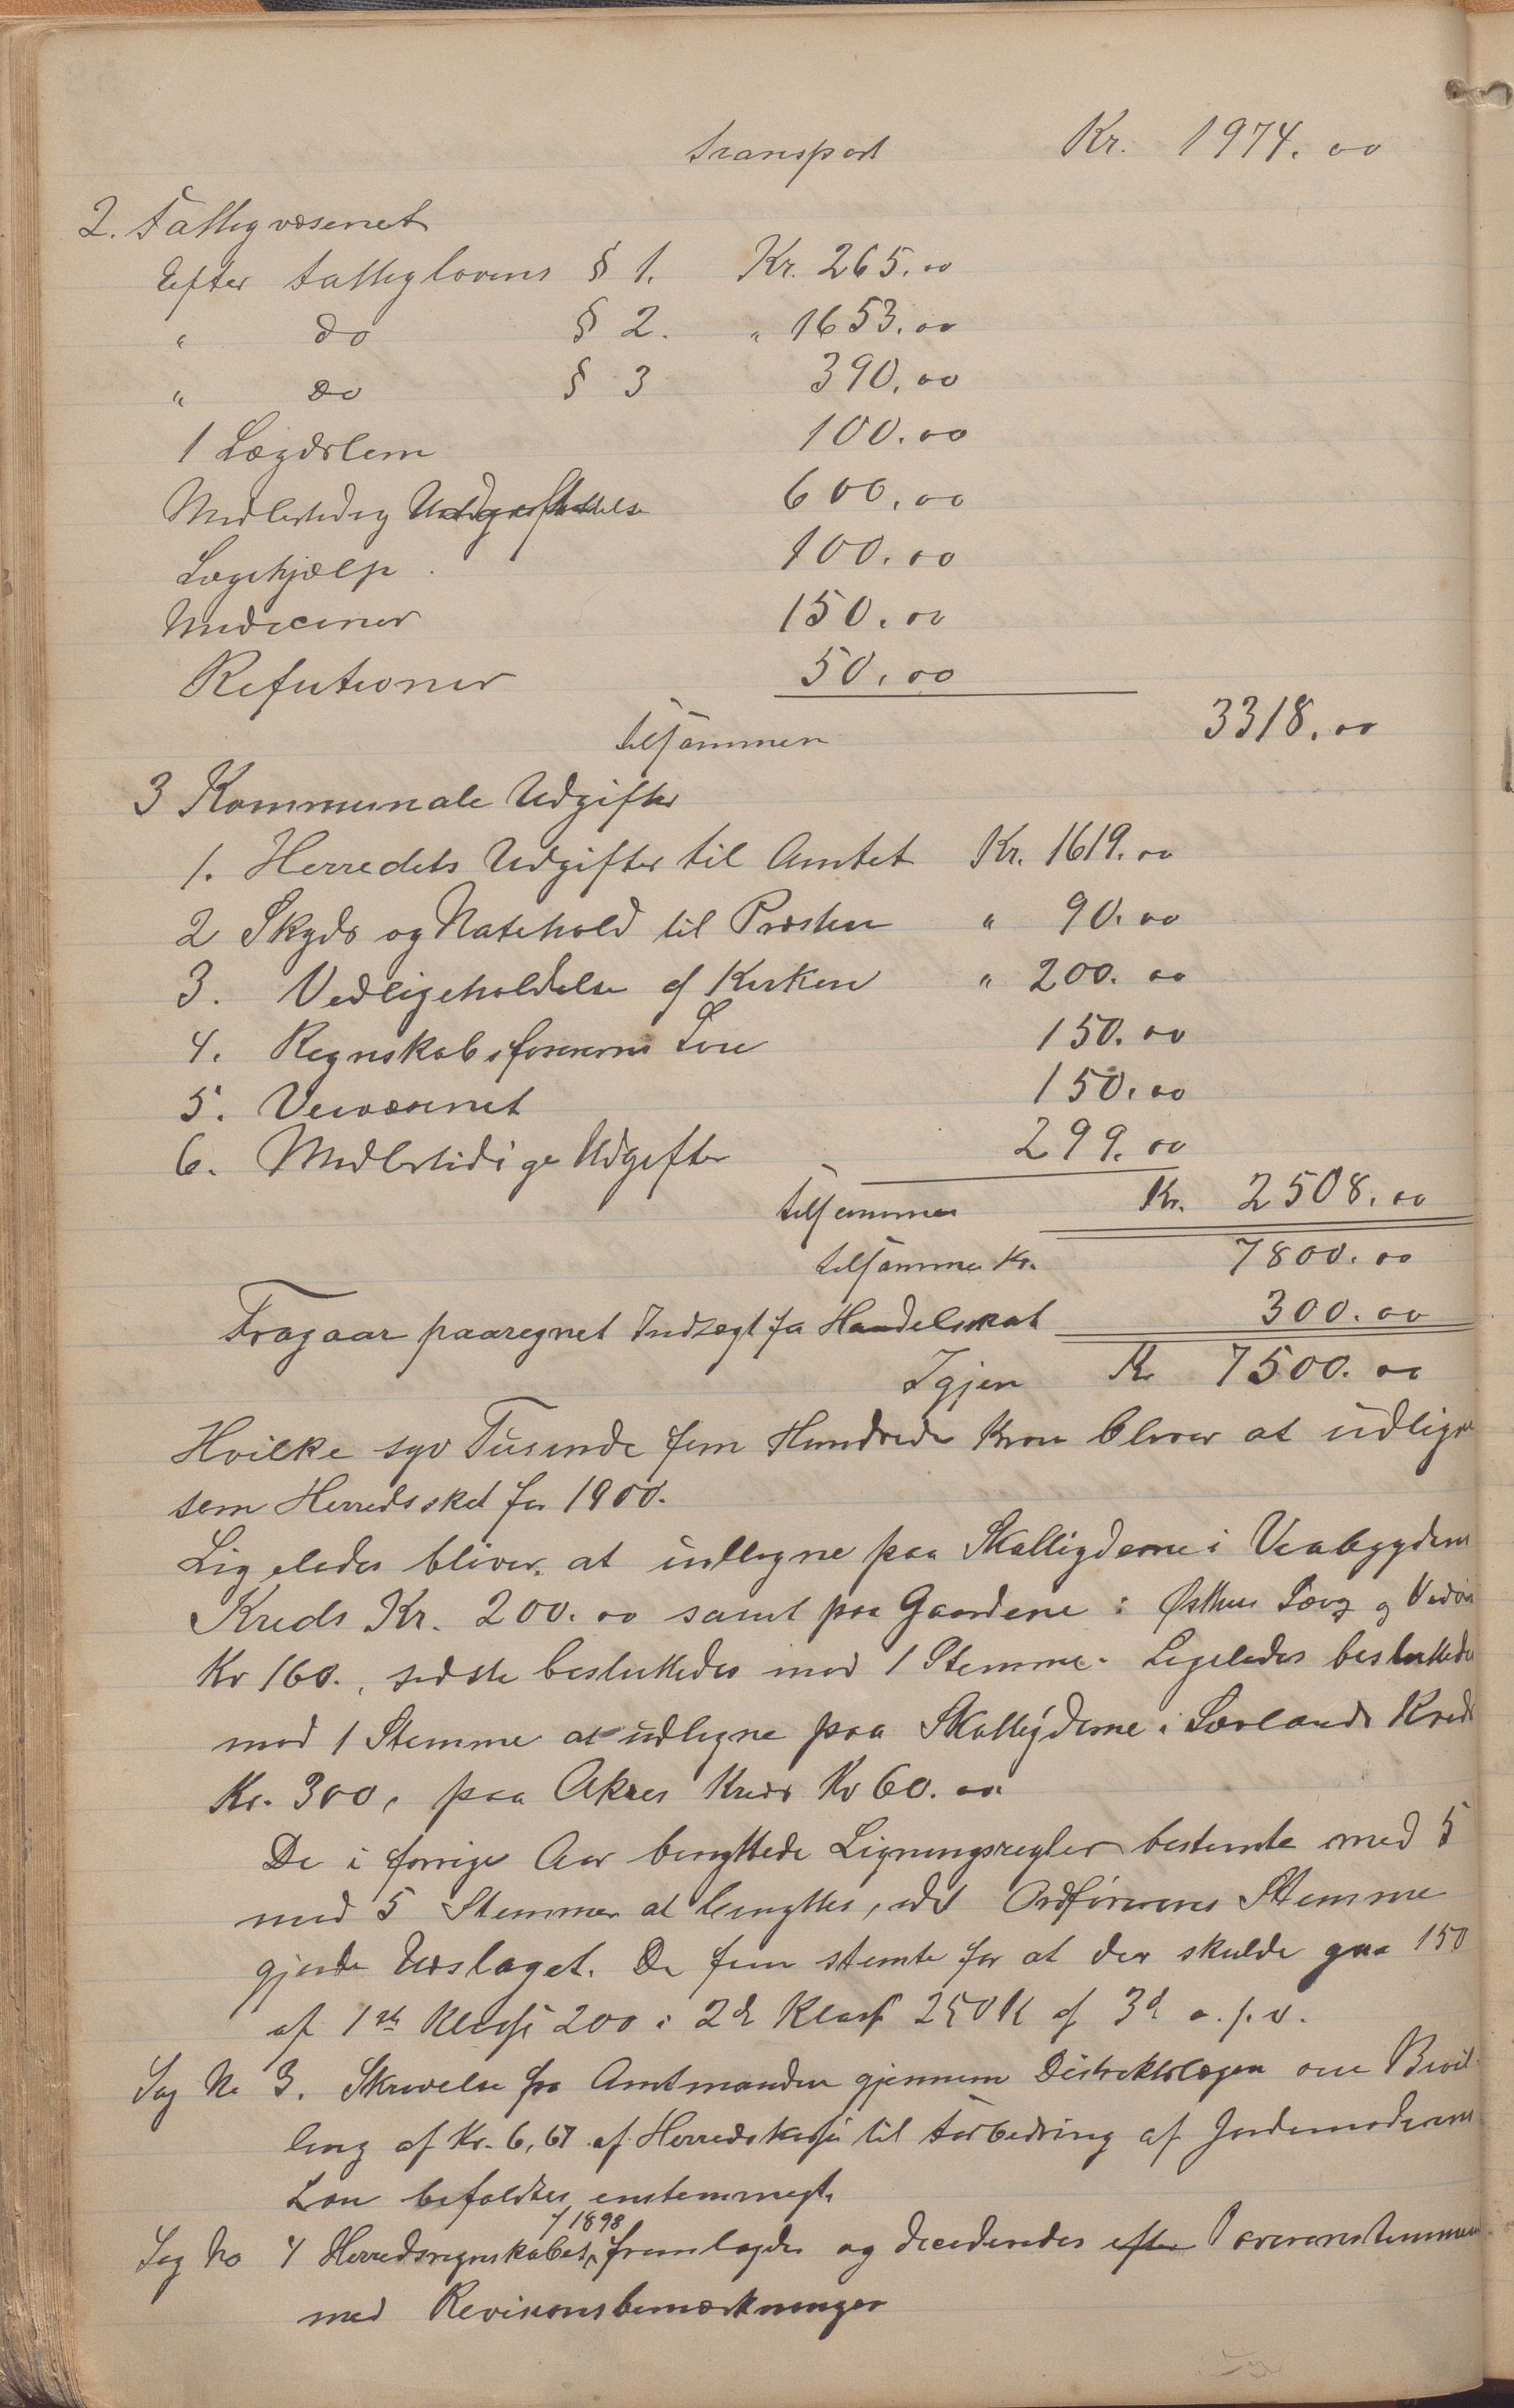 transport Kr. 1974.00
2. Fattigvæsenet
Efter fattiglovens § 1. Kr. 265.00
" do § 2. " 1653.00
" do § 3 390.00
1 Lægdslem 100.00
Midlertidig 600.00
Lægehjælp 100.00
Medeciner 150.00
Refutioner 50.00
tilsammen 3318.00
3 Kommunale Udgifter
1. Herredets Udgifter til Amtet Kr. 1619.00
2 Skyds og Natehold til Præsten " 90.00
3. Vedligeholdelse af Kirken " 200.00
4. Regnskabsførerens Løn 150.00
5. Veivæsenet 150.00
6. Midlertidige Udgifter 299.00
tilsammen Kr. 2508.00
tilsamme Kr. 7800.00
Fragaar paaregnet Indtægt fra Handelsskat 300.00
Igjen Kr 7500.00
Hvilke syv Tusende fem Hundrede Kron bliver at udligne
som Herredsskat for 1900.
Ligeledes bliver at udligne paa Skatteyderne i Vaabygdens
Kreds Kr. 200.00 samt paa Gaardene: Østhus og
Kr 160., sidste besluttedes mod 1 Stemme. Ligeledes besluttedes
mod 1 Stemme at udligne paa Skatteyderne i Sørlands Kreds
Kr. 300, paa Akres Kreds Kr 60.00
De i forrige Aar benyttede Ligningsregler bestemte med 5
mod 5 Stemmer at benyttes, idet Ordførerens Stemme
gjorde Udslaget. De fem stemte for at der skulde gaa 150
af 1ste Klasse 200 i 2d Klasse 250 K af 3d o.s.v.
Sag No 3. Skrivelse fra Amtmanden gjennem Distriktslægen om Bevil-
ling af Kr. 6,67 af Herredskassen til Forbedring af Jordemoderens
Løn befaldtes enstemmigt.
Sag No 4 Herredsregnskabet f 1898 fremlagdes og decideredes efter Overensstemmelse
med Revisionsbemærkninger